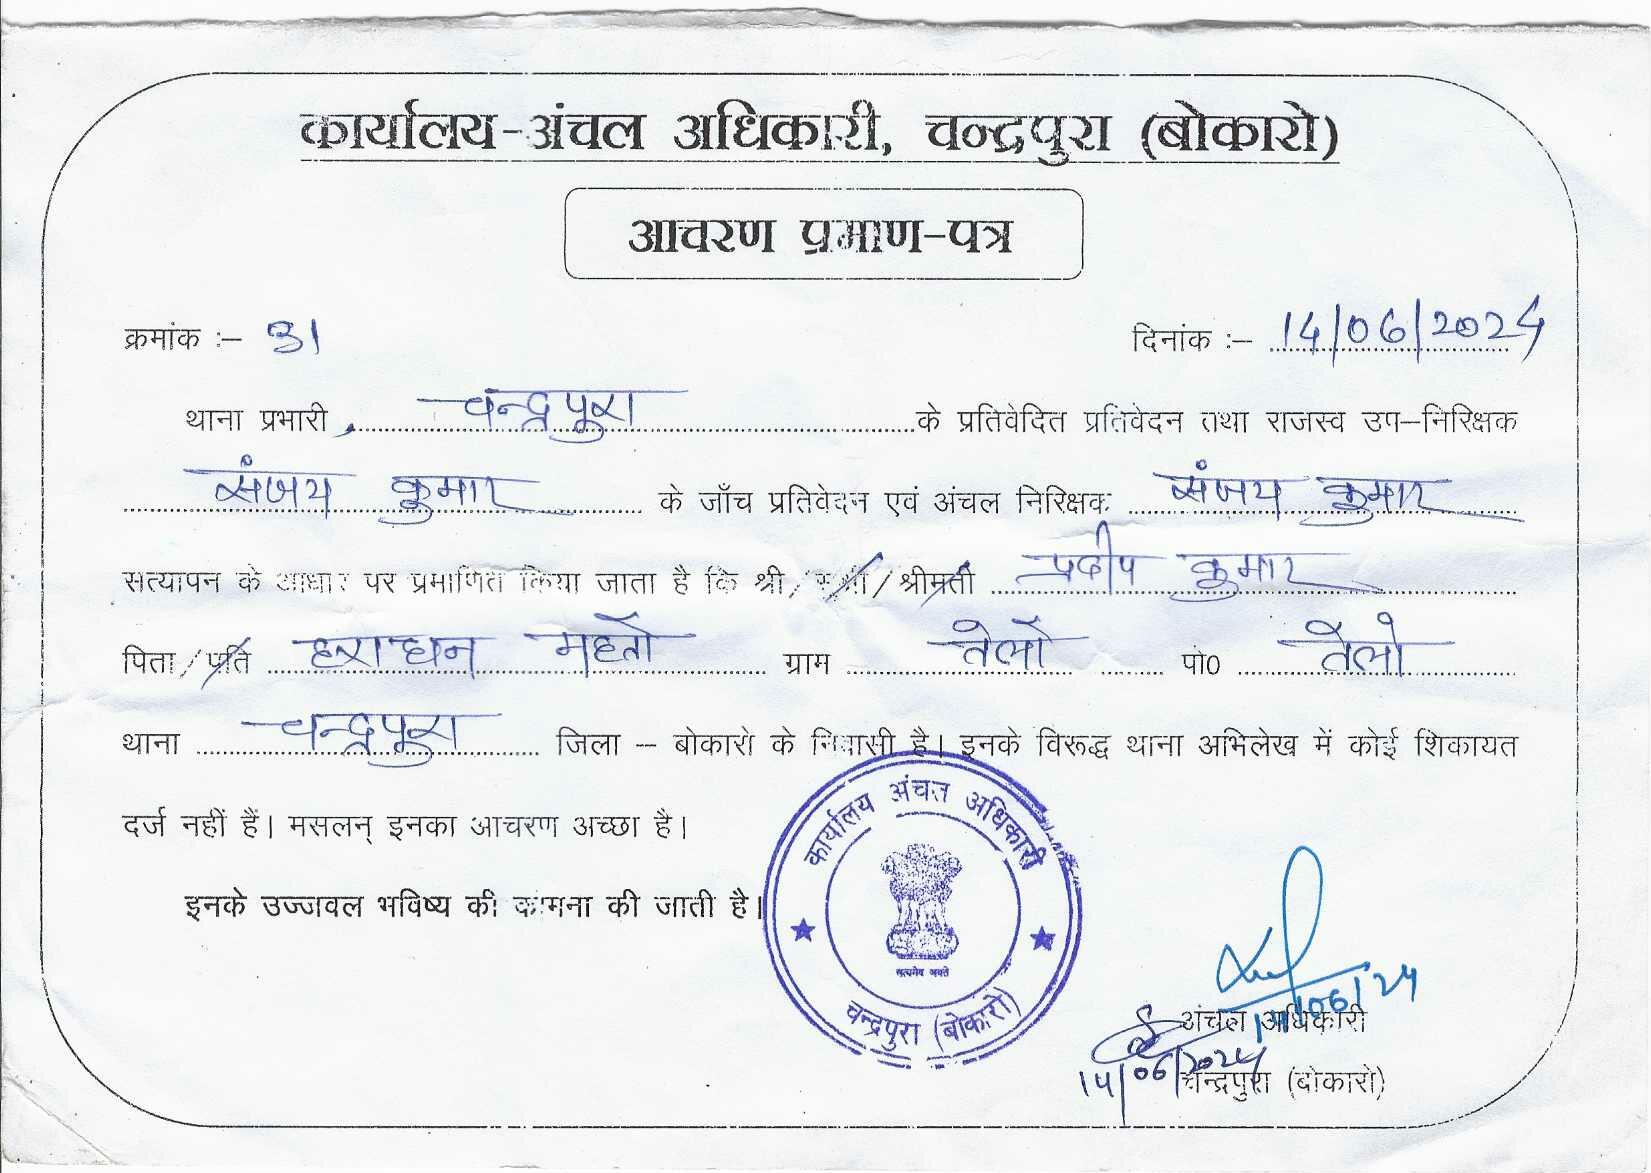 कार्यालय-अंचल अधिकारी, चन्द्रपुरा (बोकारो)
आचरण प्रमाण-पत्र
क्रमांक :– 31 दिनांक :– 14/06/2024
थाना प्रभारी, चन्द्रपुरा के प्रतिवेदित प्रतिवेदन तथा राजस्व उप–निरिक्षक
संजय कुमार के जाँच प्रतिवेदन एवं अंचल निरिक्षक संजय कुमार
सत्यापन के आधार पर प्रमाणित किया जाता है कि श्री/सुश्री/श्रीमती प्रदीप कुमार
पिता/पति हराधन महतो ग्राम तेलो पो0 तेलो
थाना चन्द्रपुरा जिला – बोकारो के निवासी है। इनके विरूद्ध थाना अभिलेख में कोई शिकायत
दर्ज नहीं हैं। मसलन् इनका आचरण अच्छा है।
इनके उज्जवल भविष्य की कामना की जाती है।
कार्यालय अंचल अधिकारी
सत्यमेव जयते
चन्द्रपुरा (बोकारो)
14/06/24
अंचल अधिकारी
14/06/2024
चन्द्रपुरा (बोकारो)